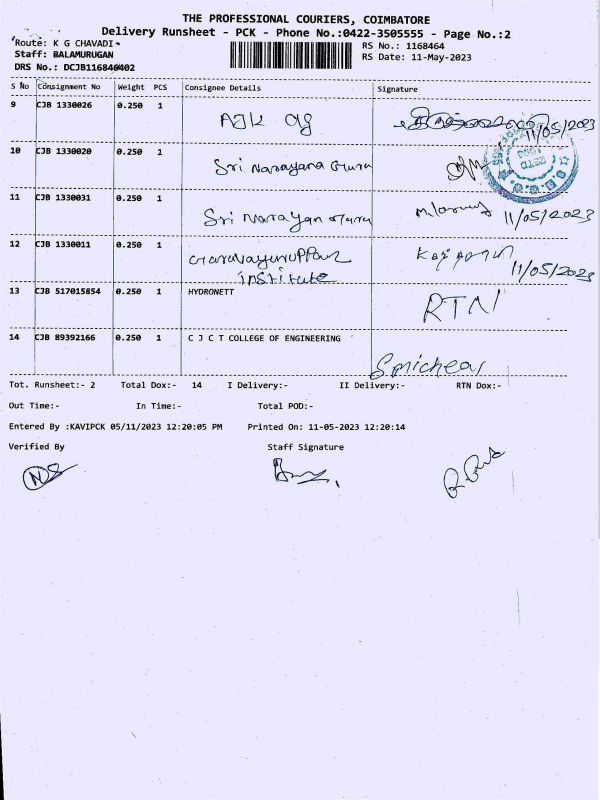 THE PROFESSIONAL COURIERS, COIMBATORE
Delivery Runsheet - PCK - Phone No.:0422-3505555 - Page No.:2
Route: K G CHAVADI
Staff: BALAMURUGAN
DRS No.: DCJB116846402
RS No.: 1168464
RS Date: 11-May-2023
S No Consignment No Weight PCS Consignee Details Signature
9 CJB 1330026 0.250 1 AJK 11/05/2023
10 CJB 1330020 0.250 1 Sri Narayana Guru
11 CJB 1330031 0.250 1 Sri Narayan Guru 11/05/2023
12 CJB 1330011 0.250 1 institute 11/05/2023
13 CJB 517015854 0.250 1 HYDRONETT RTN
14 CJB 89392166 0.250 1 C J C T COLLEGE OF ENGINEERING
Tot. Runsheet:- 2 Total Dox:- 14 I Delivery:- II Delivery:- RTN Dox:-
Out Time:- In Time:- Total POD:-
Entered By :KAVIPCK 05/11/2023 12:20:05 PM Printed On: 11-05-2023 12:20:14
Verified By Staff Signature